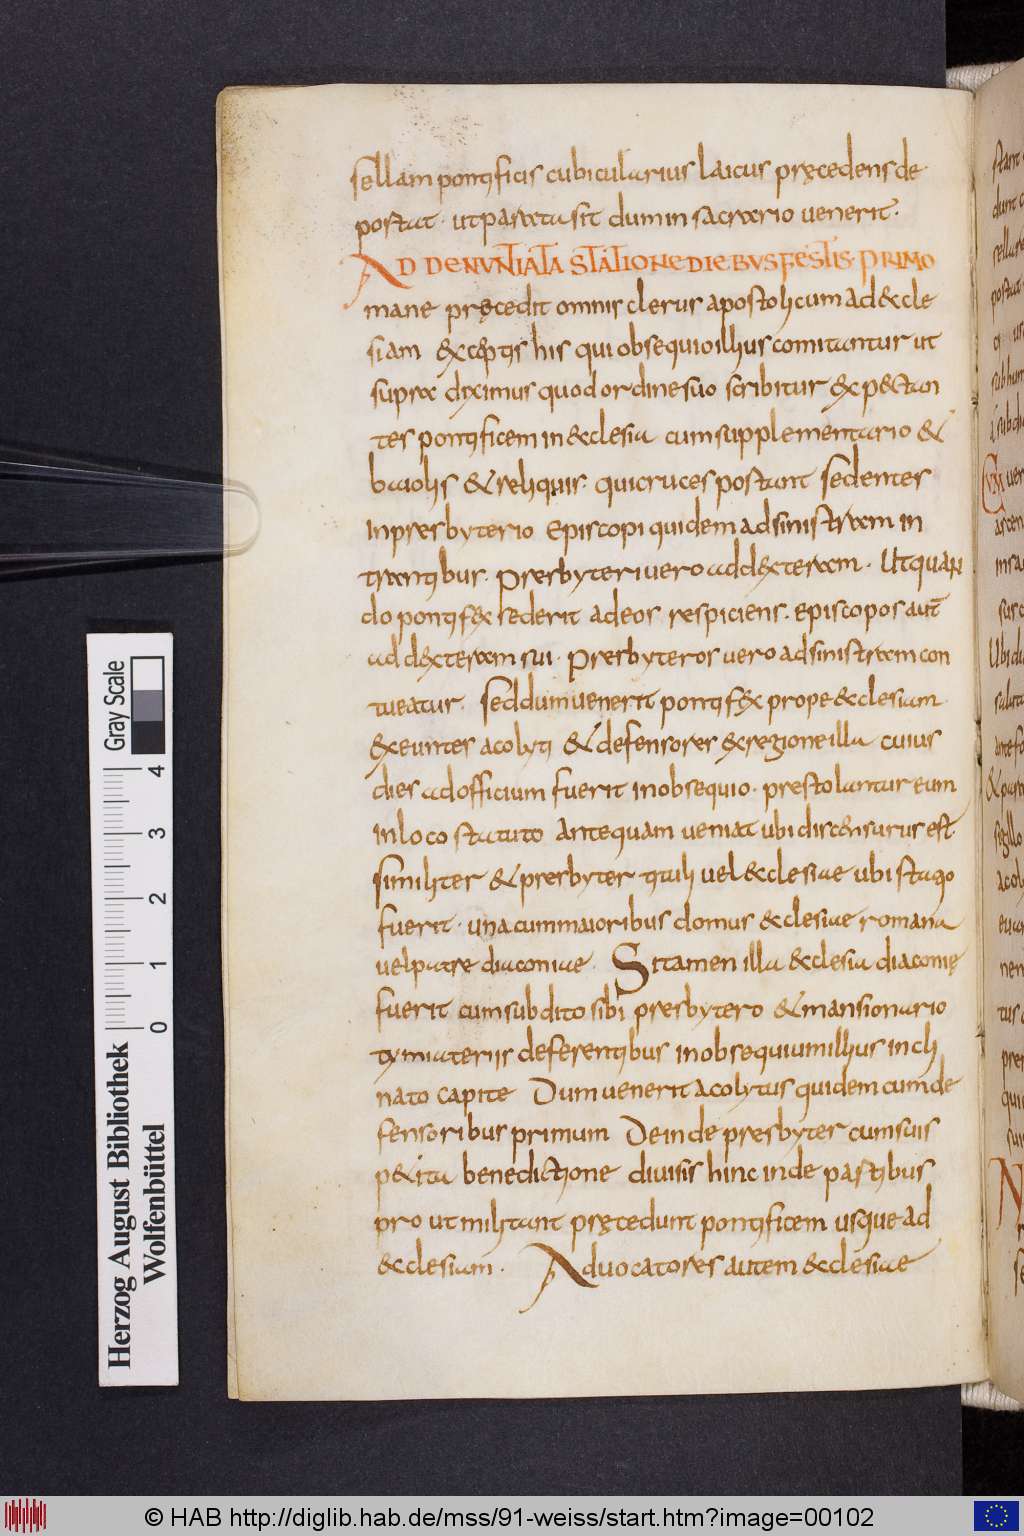 sellam pontificis cubicularius laicus pręcedens de
portat · ut parata sit dum in sacrario uenerit ·
AD DENUNTIATA STATIONE DIEBUS FESTIS · PRIMO
mane pręcedit omnis clerus apostolicum ad &cle
siam exceptis his qui obsequio illius comitantur ut
supra diximus quod ordine suo scribitur Expectan
tes pontificem in &clesia cum supplementario &
baiolis & reliquis · qui cruces portant sedentes
In presbyterio Episcopi quidem ad sinistram in
trantibus · Presbyteri uero ad dexteram · Ut quan
do pontifex sederit ad eos respiciens · Episcopos aut
ad dexteram sui · Presbyteros uero ad sinistram con
tueatur · sed dum uenerit pontifex prope &clesiam
Exeuntes acolyti & defensores ex regione illa cuius
dies ad officium fuerit in obsequio · prestolantur eum
In loco statuto Antequam ueniat ubi discensurus est
similiter & presbyter tituli uel &clesiae ubi statio
fuerit · una cum maioribus domus &clesiae romana
uel patre diaconiae · Si tamen illa &clesia diaconię
fuerit cum subdito sibi presbytero & mansionario
tymiateriis deferentibus in obsequium illius incli
nato capite Dum uenerit acolytus quidem cum de
fensoribus primum Deinde presbyter cum suis
p&ita benedictione diuisis hinc inde partibus
pro ut militant pręcedunt pontificem usque ad
&clesiam · Aduocatores autem &clesiae
Gray Scale
4
3
2
1
0
Herzog August Bibliothek
Wolfenbüttel
© HAB http://diglib.hab.de/mss/91-weiss/start.htm?image=00102